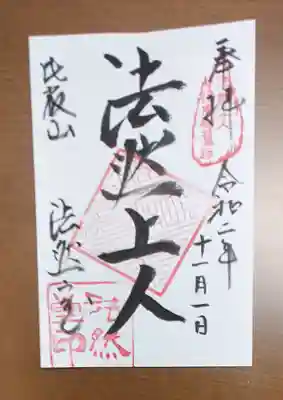 奉拝
令和二年
十一月一日
法然上人
比叡山
法然堂
法然
霊印